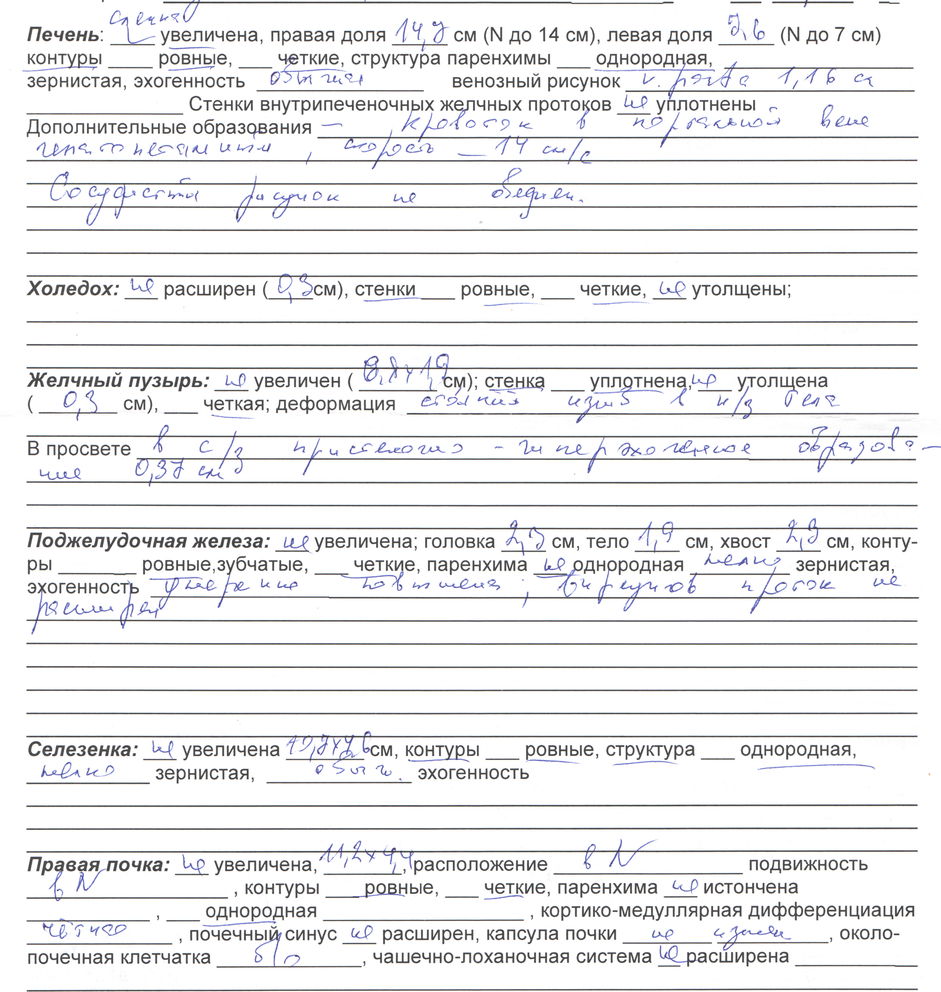 слегка
Печень: увеличена, правая доля 14,7 см (N до 14 см), левая доля 7,6 (N до 7 см)
контуры ____ ровные, ___ четкие, структура паренхимы ___ однородная,
зернистая, эхогенность обычная венозный рисунок v. porta 1,16 см
Стенки внутрипеченочных желчных протоков не уплотнены
Дополнительные образования — , кровоток в портальной вене
гепатопетальный, скорость — 14 см/с
Сосудистый рисунок не обеднен.
Холедох: не расширен (0,3 см), стенки ___ ровные, ___ четкие, не утолщены;
Желчный пузырь: не увеличен ( 8,8х1,9 см); стенка ___ уплотнена, не утолщена
( 0,3 см), ___ четкая; деформация стойкий изгиб в н/з тела
В просвете в с/з пристеночно - гиперэхогенное образова-
ние 0,37 см
Поджелудочная железа: не увеличена; головка 2,3 см, тело 1,9 см, хвост 2,3 см, конту-
ры ______ ровные,зубчатые, ___ четкие, паренхима не однородная мелко зернистая,
эхогенность умеренно повышена; вирсунгов проток не
расширен
Селезенка: не увеличена см, контуры ___ ровные, структура ___ однородная,
мелко зернистая, обычн. эхогенность
Правая почка: не увеличена, 11,2х4,4, расположение в N подвижность
в N , контуры ___ ровные, ___ четкие, паренхима не истончена
, ___ однородная , кортико-медуллярная дифференциация
чёткая , почечный синус не расширен, капсула почки не измен , около-
почечная клетчатка б/о , чашечно-лоханочная система не расширена